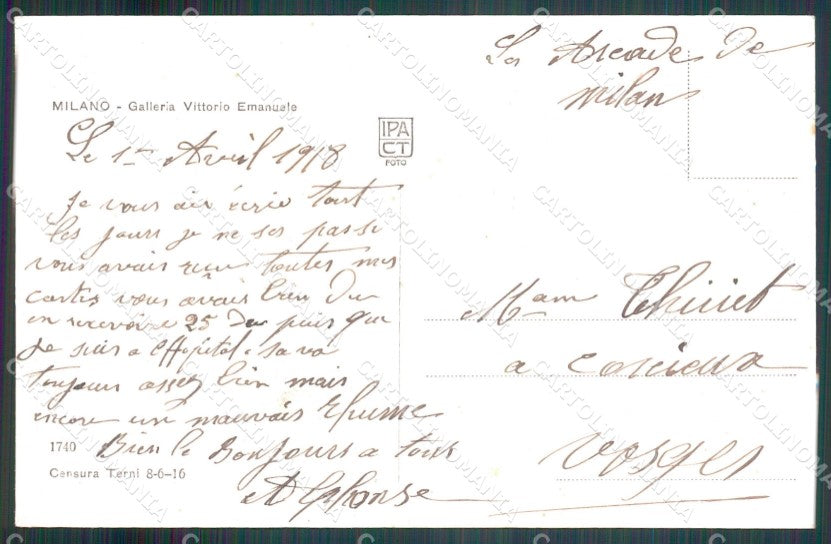 La Arcade de
milan
MILANO - Galleria Vittorio Emanuele
IPA
CT
FOTO
Le 1er Avril 1918
Je vous ai écrie tout
les jours je ne ses passi
vous avais reçu toutes mes
cartes vous avais bien du
en recevoire 25 depuis que
Je suis a l'hopital. sa va
toujours assez bien mais
encore un mauvais Rhume
Bien le Bonjours a tous
Alphonse
1740
Censura Terni 8-6-16
Mam Thiriet
a
Vosges
CARTOLINOMANIA